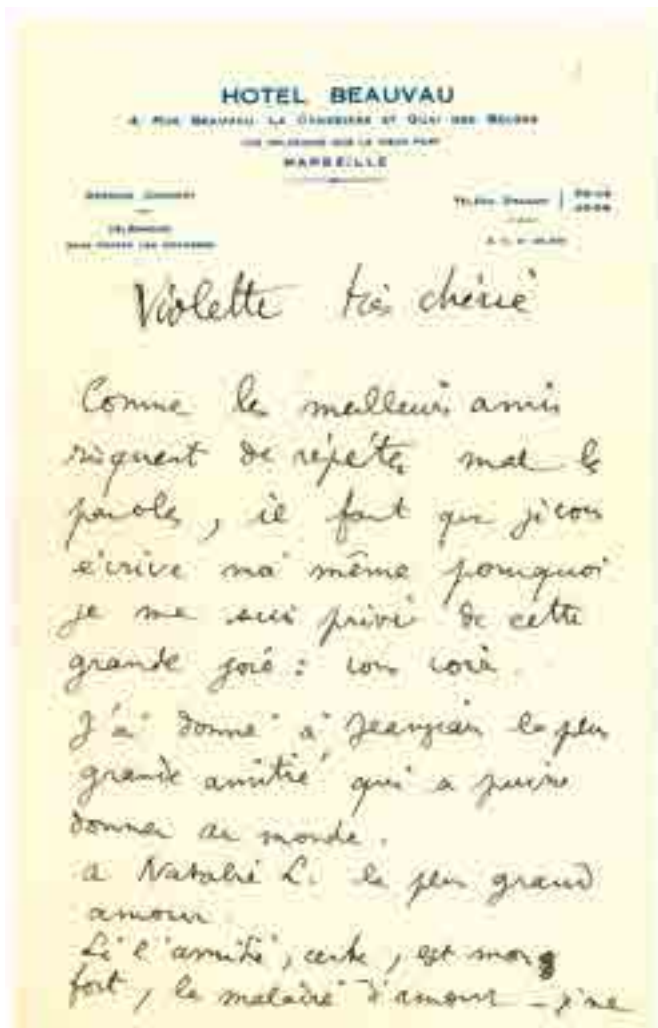 HOTEL BEAUVAU
4, RUE BEAUVAU, LA CANEBIÈRE ET QUAI DES BELGES
MARSEILLE
Violette très chérie
Comme les meilleurs amis
risquent de répéter mal les
paroles, il faut que je vous
écrive moi même pourquoi
je me suis privé de cette
grande joie : vous voir.
J'ai donné à Jeanjean la plus
grande amitié que je puisse
donner au monde.
a Natalie le plus grand
amour.
Si l'amitié, certes, est
fort, la maladie d'amour - je ne